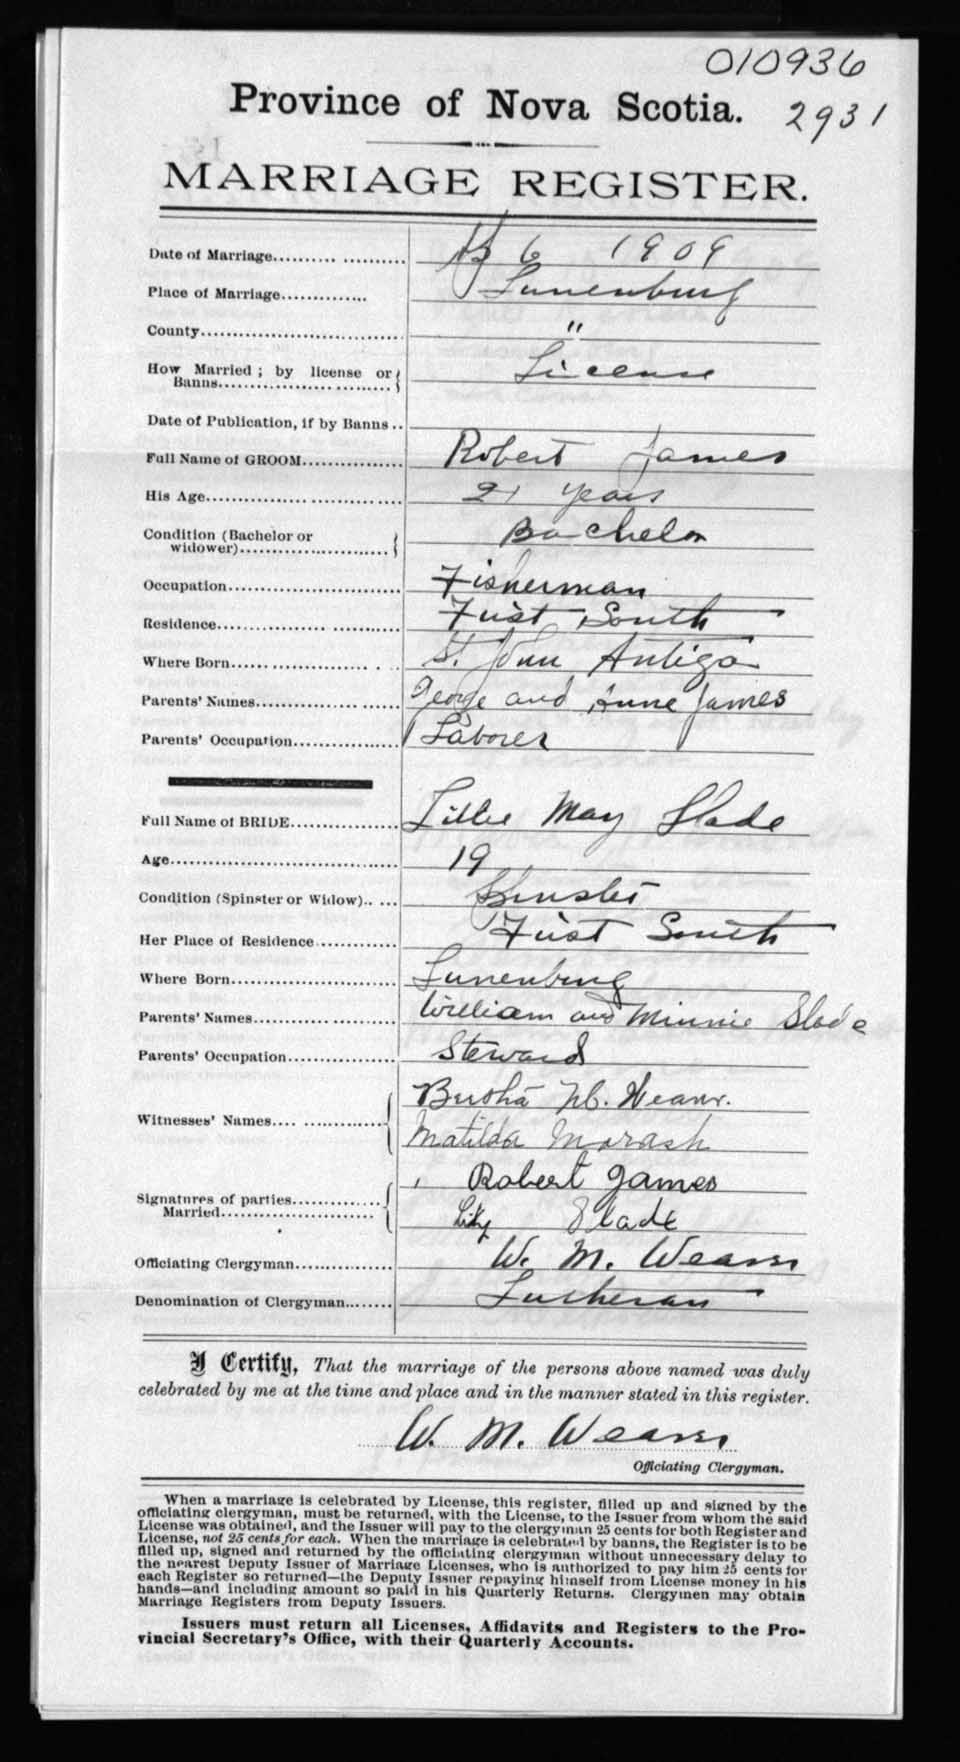 010936
Province of Nova Scotia. 2931
MARRIAGE REGISTER.
Date of Marriage.................... 6 1909
Place of Marriage............. Lunenburg
County............................ "
How Married ; by license or
Banns........................... License
Date of Publication, if by Banns ..
Full Name of GROOM............... Robert James
His Age............................ 21 years
Condition (Bachelor or
widower)........................ Bachelor
Occupation......................... Fisherman
Residence.......................... Fiist South
Where Born...................... St. John Antiga
Parents' Names.................. George and Anne James
Parents' Occupation............... Laborer
Full Name of BRIDE............... Lillie May Slade
Age................................. 19
Condition (Spinster or Widow).. ... Spinster
Her Place of Residence............ Fiist South
Where Born........................ Lunenburg
Parents' Names.................... William and Minnie Slade
Parents' Occupation............... Steward
Witnesses' Names....
Matilda Morash
Signatures of parties............ Robert James
Married...................... Slade
Officiating Clergyman.............. W. M. Weaver
Denomination of Clergyman....... Lutheran
I Certify, That the marriage of the persons above named was duly
celebrated by me at the time and place and in the manner stated in this register.
W. M. Weaver
Officiating Clergyman.
When a marriage is celebrated by License, this register, filled up and signed by the
officiating clergyman, must be returned, with the License, to the Issuer from whom the said
License was obtained, and the Issuer will pay to the clergyman 25 cents for both Register and
License, not 25 cents for each. When the marriage is celebrated by banns, the Register is to be
filled up, signed and returned by the officiating clergyman without unnecessary delay to
the nearest Deputy Issuer of Marriage Licenses, who is authorized to pay him 25 cents for
each Register so returned—the Deputy Issuer repaying himself from License money in his
hands—and including amount so paid in his Quarterly Returns. Clergymen may obtain
Marriage Registers from Deputy Issuers.
Issuers must return all Licenses, Affidavits and Registers to the Pro-
vincial Secretary's Office, with their Quarterly Accounts.